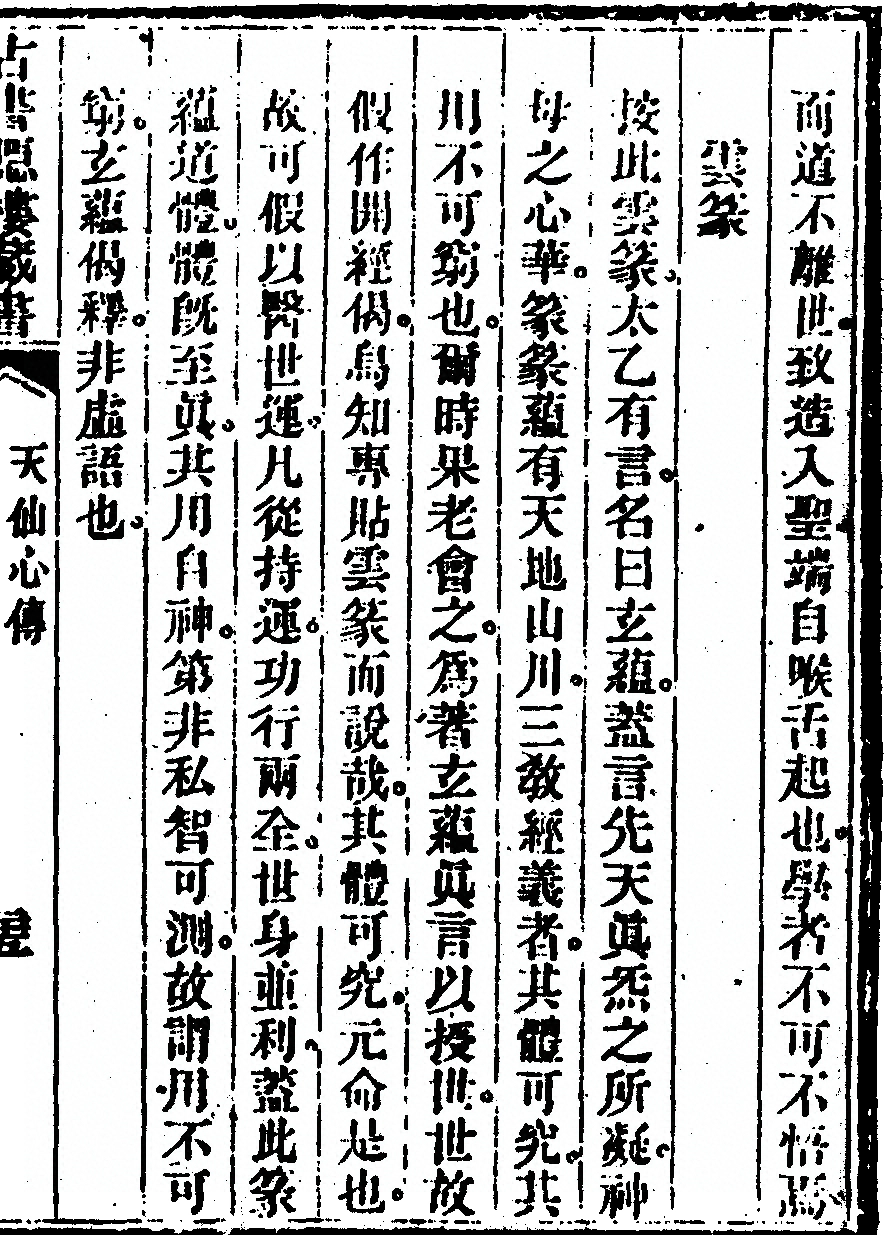 而道不離世致造入聖端自喉舌起也學者不可不悟焉
雲篆
按此雲篆太乙有言名曰玄蘊蓋言先天眞炁之所凝神
母之心華篆篆蘊有天地山川三敎經義者其體可究其
用不可窮也爾時果老會之爲著玄蘊眞言以授世世故
假作開經偈烏知專貼雲篆而說哉其體可究元命是也
故可假以醫世運凡從持運功行兩全世身並利蓋此篆
蘊道體體旣至眞其用自神第非私智可測故謂用不可
窮玄蘊偈釋非虛語也
古書隱樓藏書
天仙心傳